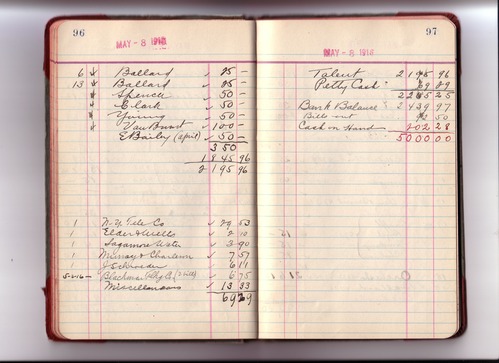 96
MAY - 8 1916
6 Ballard 25 -
13 Ballard 25 -
Spencer 50 -
Clark 50 -
Young 50 -
Van Brunt 100 -
E Bailey (April) 50 -
350
1845 96
2195 96
1 N.Y. Tele Co 29 53
1 Elder & Wells 2 10
1 Sagamore Water 3 90
1 Murray & 7 57
1 J Schroeder 6 11
5-1-16 - Blackman 6 75
1 Miscellaneous 13 33
69 29
97
MAY - 8 1916
Talent 2195 96
Petty Cash 69 29
2265 25
Bank Balance 2439 97
Bills out 92 50
Cash on Hand 202 28
5000 00